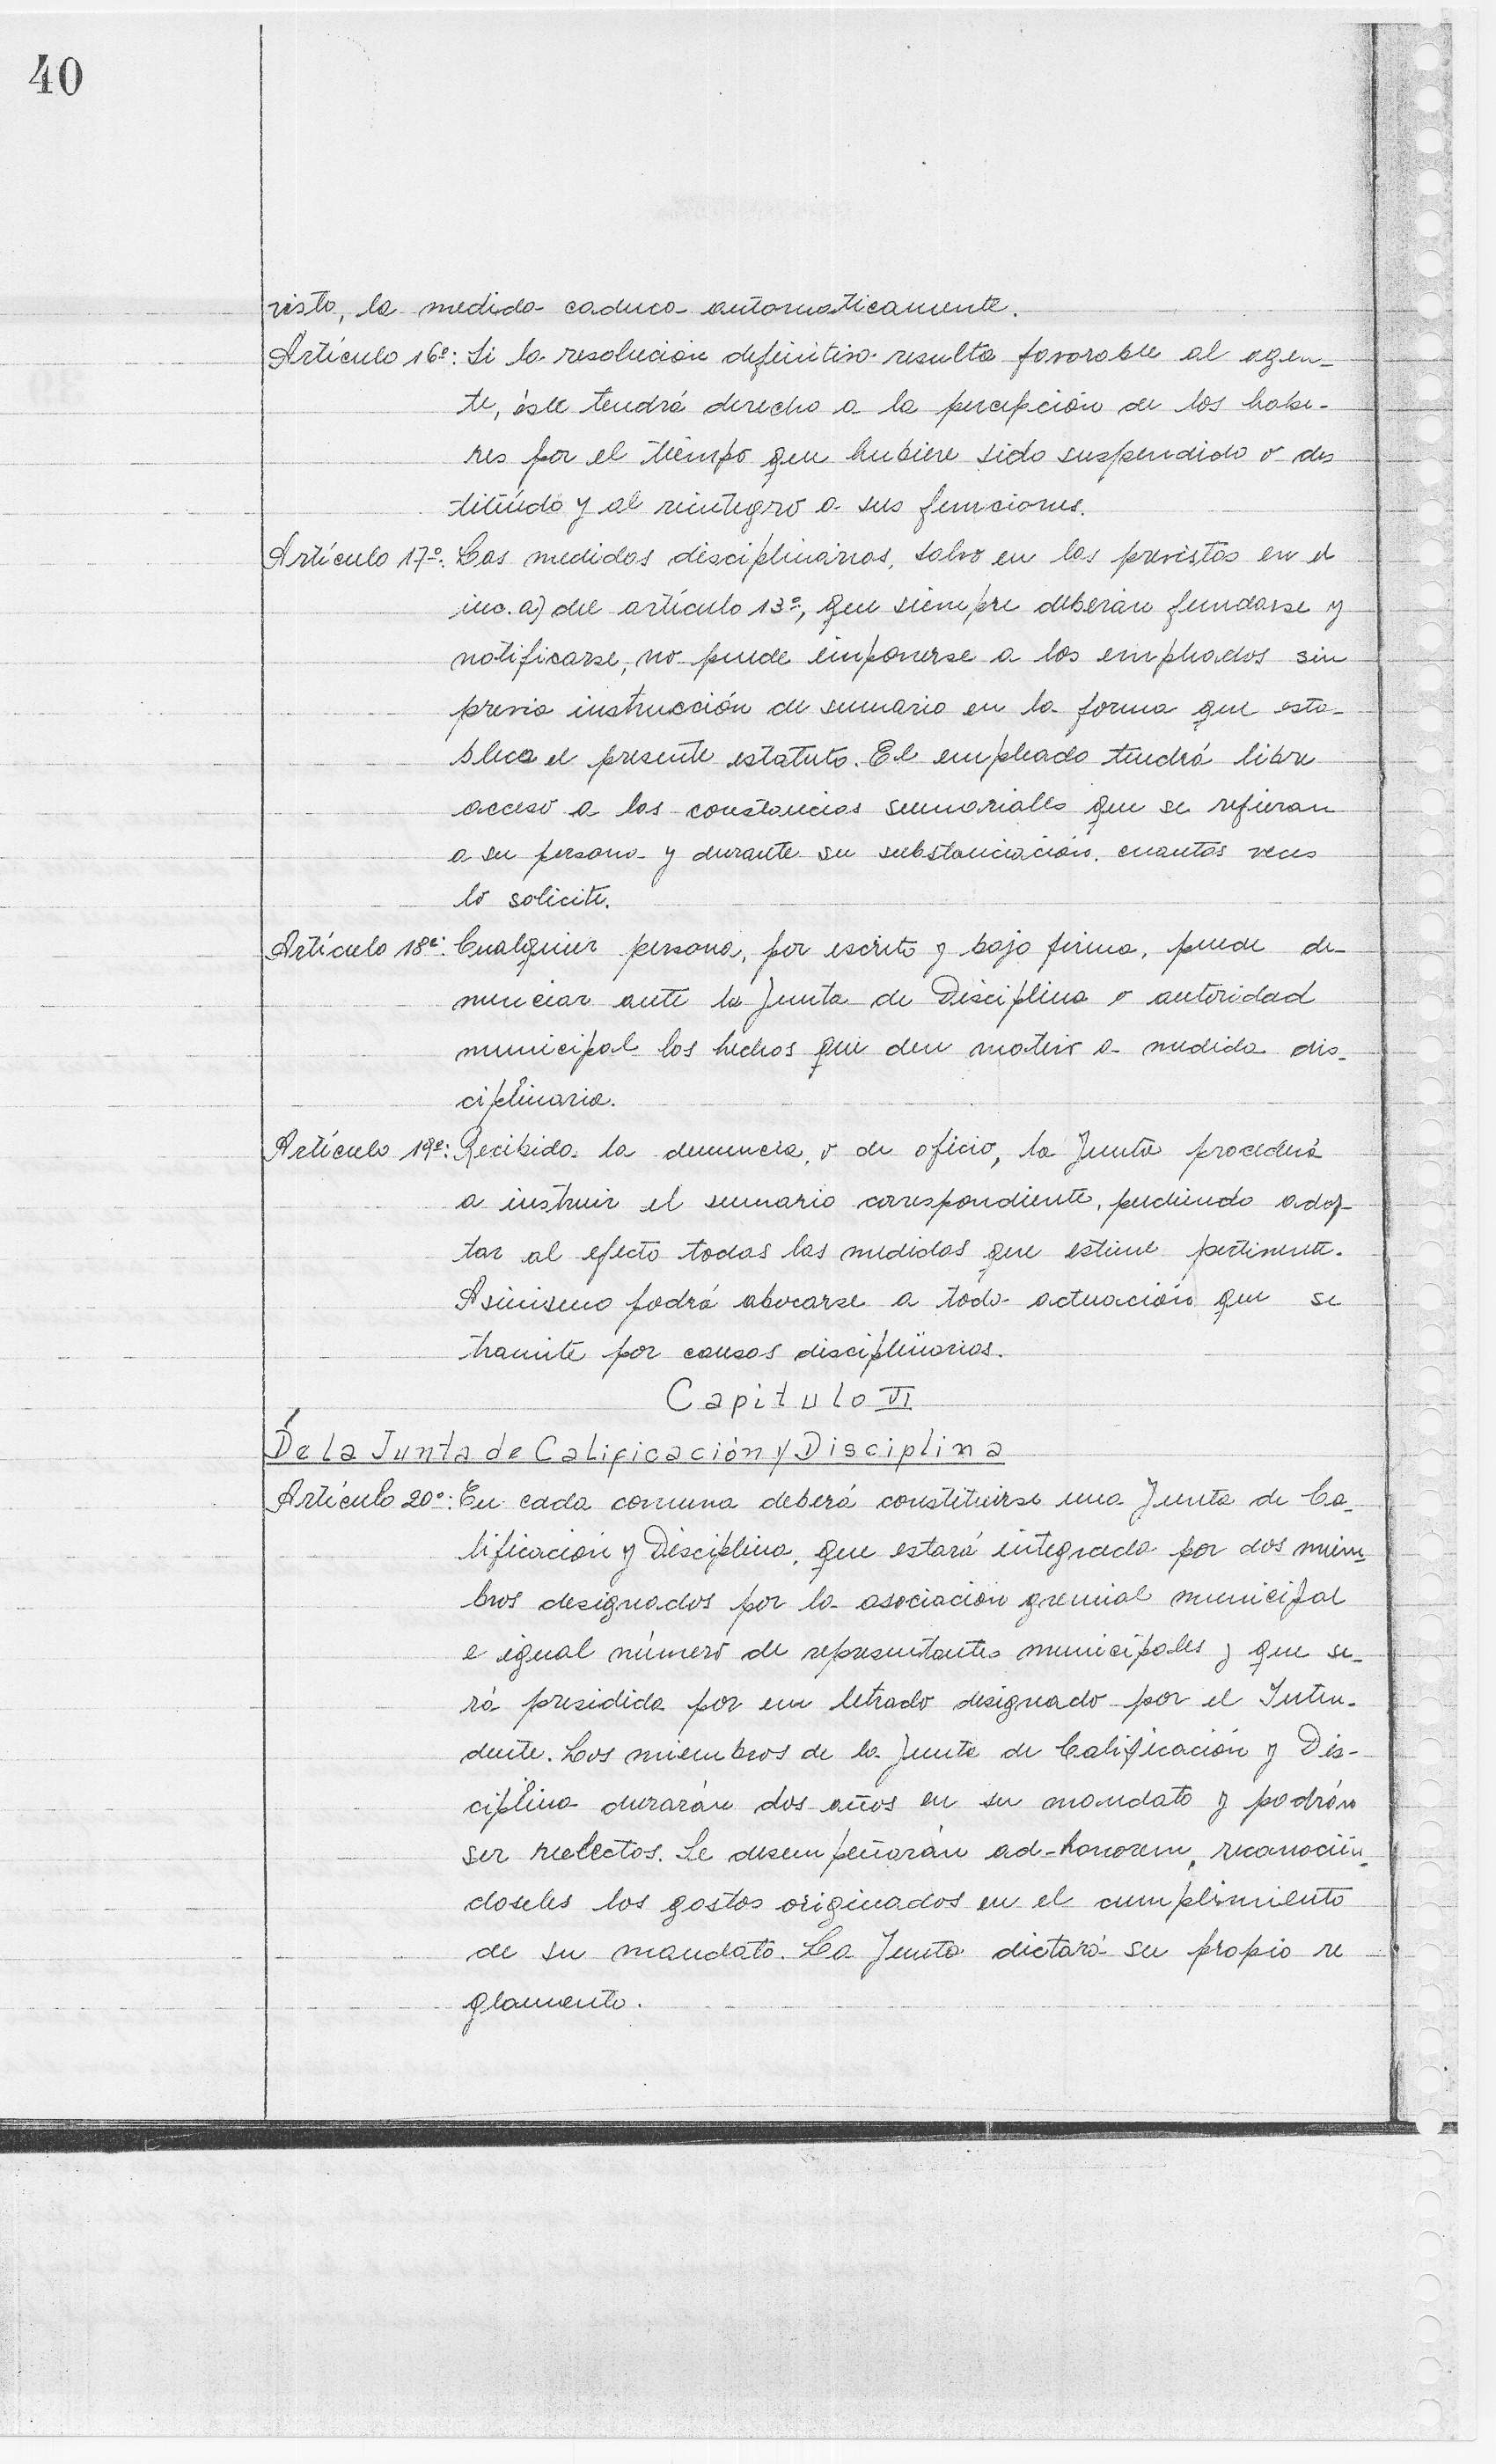 40
visto, la medida caduca automaticamente.
Artículo 16º: Si la resolución definitiva resulta favorable al agen-
te, éste tendrá derecho a la percepción de los habe-
res por el tiempo que hubiere sido suspendido o des
tituído y al reintegro a sus funciones.
Artículo 17º: Las medidas disciplinarias, salvo en las previstas en el
inc. a) del artículo 13º, que siempre deberán fundarse y
notificarse, no puede imponerse a los empleados sin
previa instrucción de sumario en la forma que esta-
blece el presente estatuto. El empleado tendrá libre
acceso a las constancias sumariales que se refieran
a su persona y durante su substanciación, cuantas veces
lo solicite.
Artículo 18º: Cualquier persona, por escrito y bajo firma, puede de-
nunciar ante la Junta de Disciplina o autoridad
municipal los hechos que den motivo a medida dis-
ciplinaria.
Artículo 19º: Recibida la denuncia, o de oficio, la Junta procederá
a instruir el sumario correspondiente, pudiendo adop-
tar al efecto todas las medidas que estime pertinente.
Asimismo podrá abocarse a toda actuación que se
tramite por causas disciplinarias.
Capitulo VI
De la Junta de Calificación y Disciplina
Artículo 20º: En cada comuna deberá constituirse una Junta de Ca-
lificación y Disciplina, que estará integrada por dos miem-
bros designados por la asociación gremial municipal
e igual número de representantes municipales y que se-
rá presidida por un letrado designado por el Inten-
dente. Los miembros de la Junta de Calificación y Dis-
ciplina durarán dos años en su mandato y podrán
ser reelectos. Se desempeñarán ad-honorem, reconocién-
doseles los gastos originados en el cumplimiento
de su mandato. La Junta dictará su propio re
glamento.